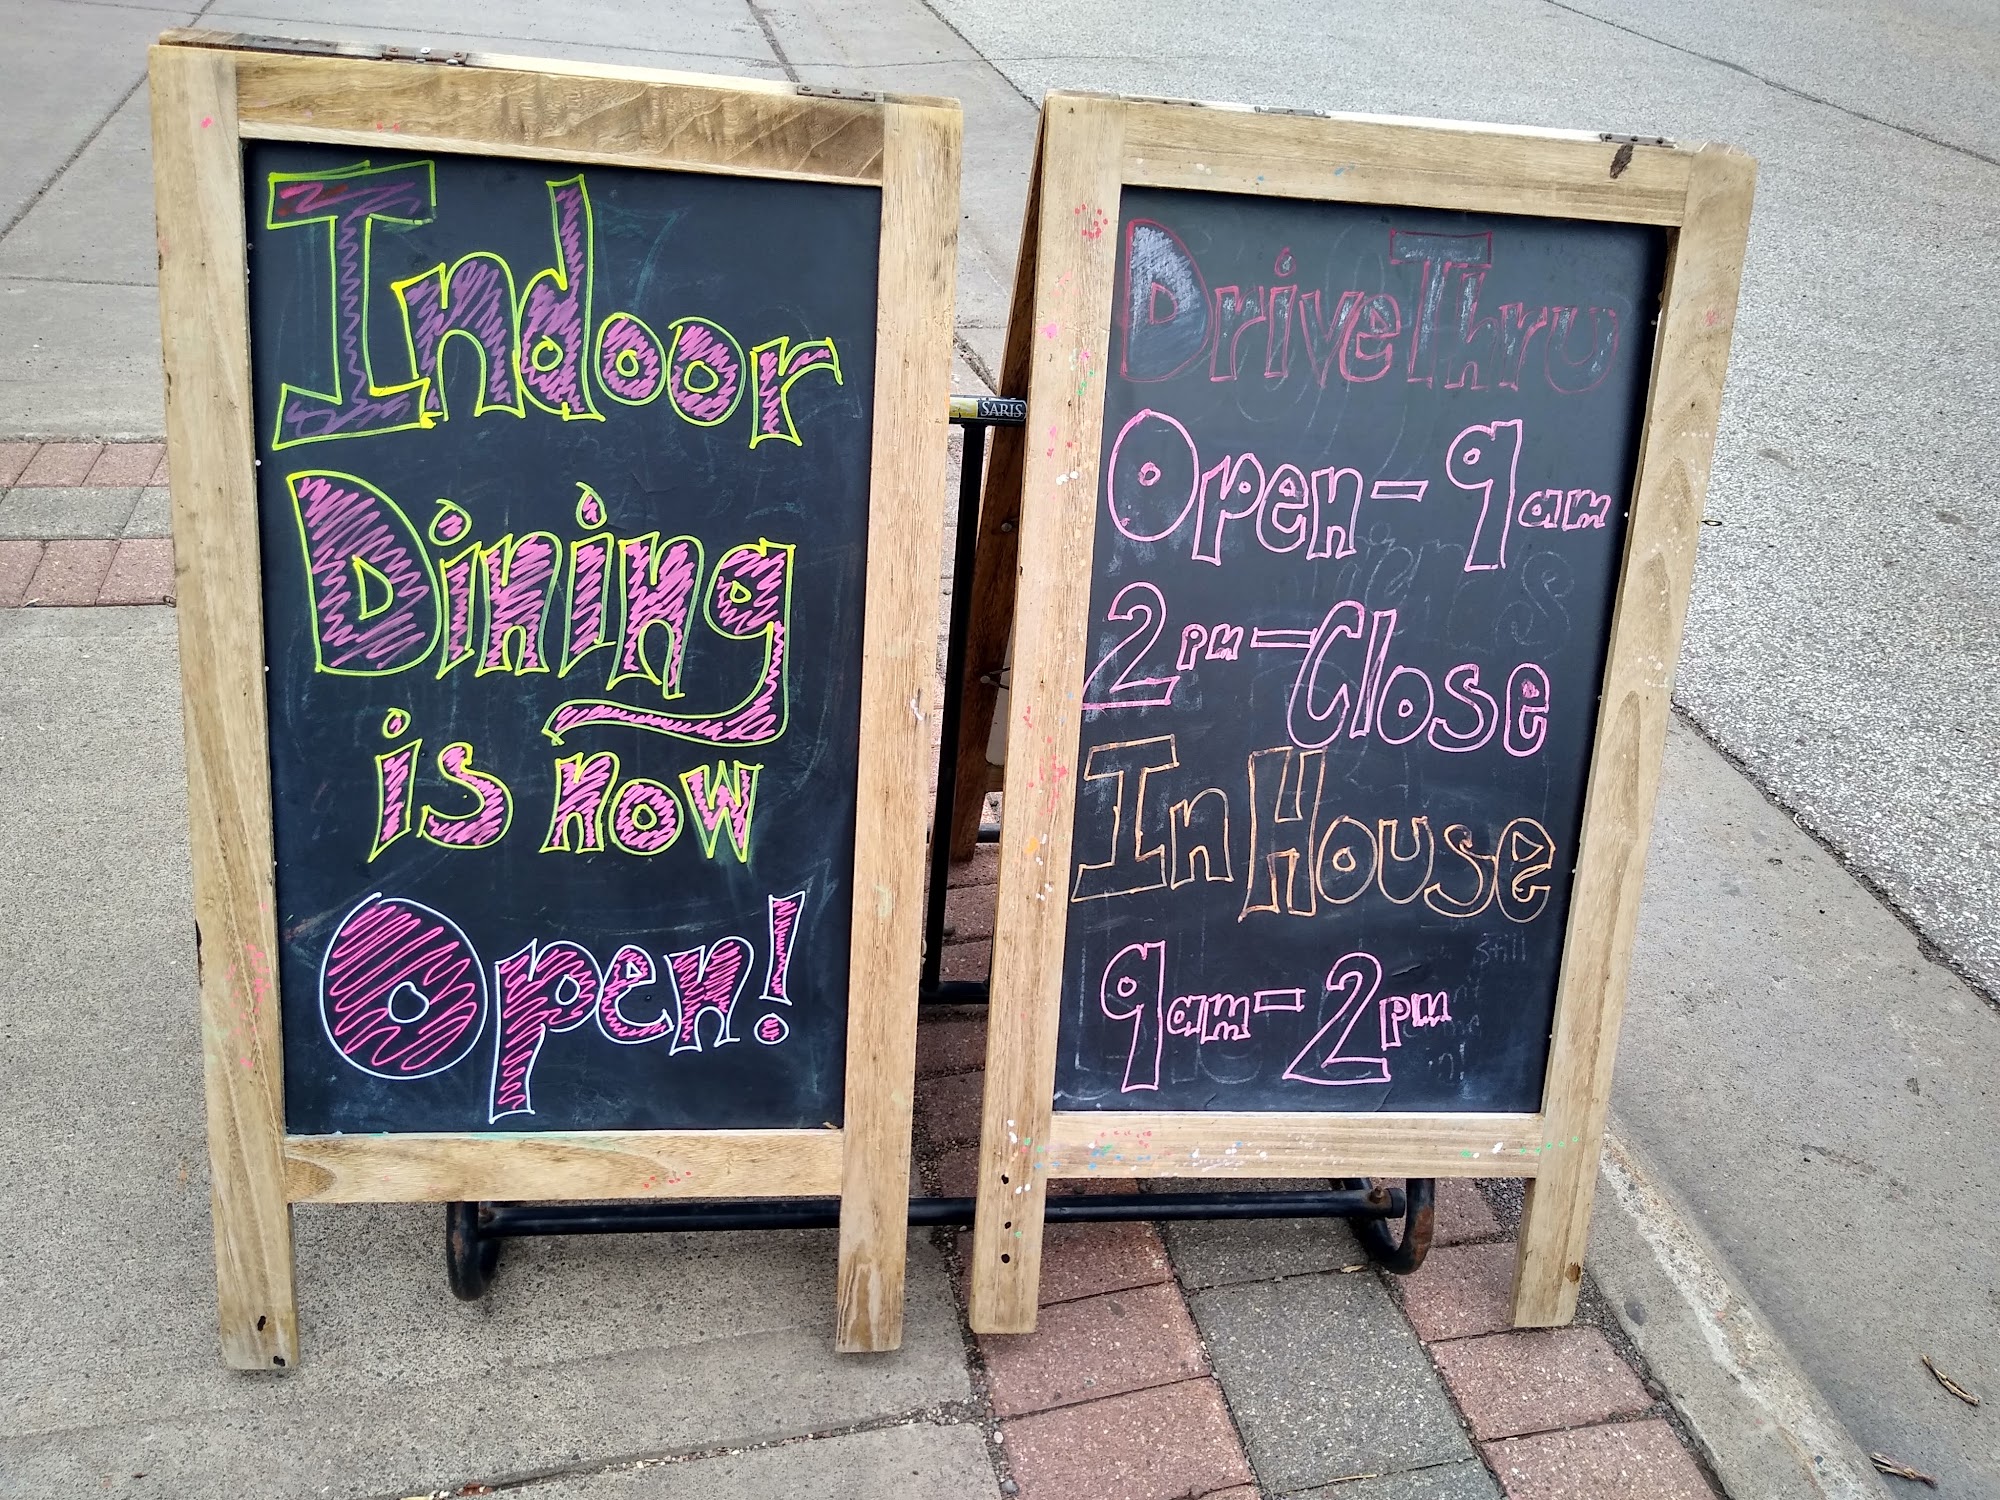 Indoor
Dining
is now
Open!
SARIS
Drive Thru
Open - 9am
2pm - Close
In House
9am - 2pm
still